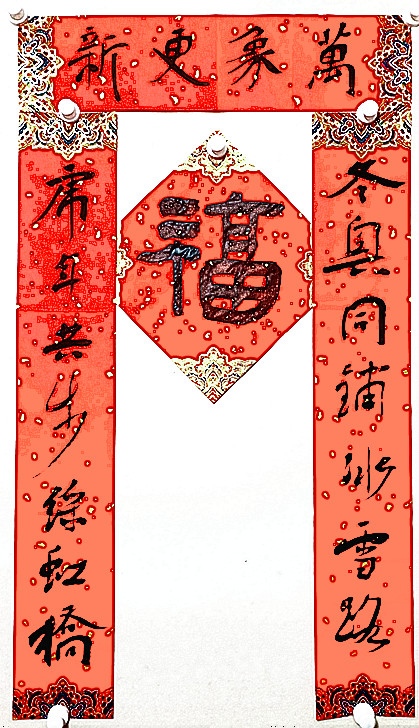 萬象更新
冬奥同鋪冰雪路
虎年共步綵虹橋
福